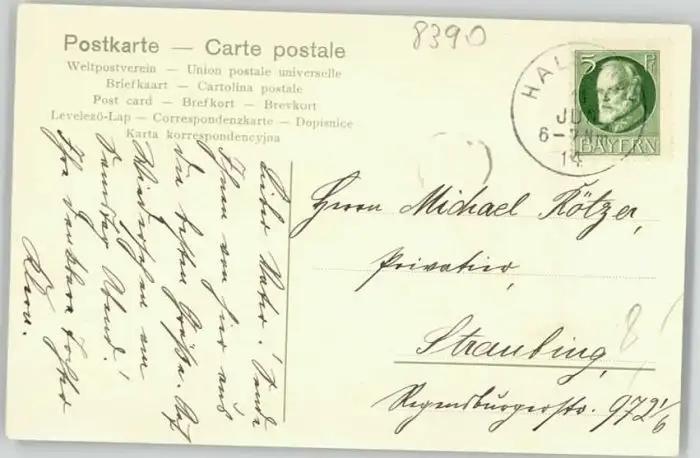 8390
Postkarte — Carte postale
Weltpostverein — Union postale universelle
Briefkaart — Cartolina postale
Post card — Brefkort — Brevkort
Levelező-Lap — Correspondenzkarte — Dopisnice
Karta korrespondencyjna
5 Pf
BAYERN
HAL
JUN
6-7 Nm
14
Lieber Vater! Sende
Ihnen von hier aus
die besten Grüße. Auf
Wiedersehen am
Samstag Abend!
Ihre dankbare Tochter
Herrn Michael Kötzer,
Privatier,
Straubing,
Regensburgerstr. 972 1/6
8